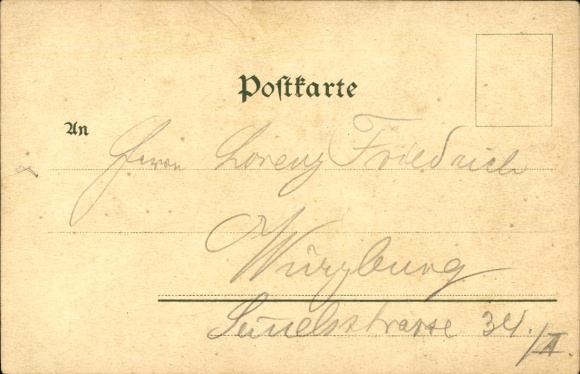 Postkarte
An
Herrn Lorenz Friedrich
Würzburg
34./II.